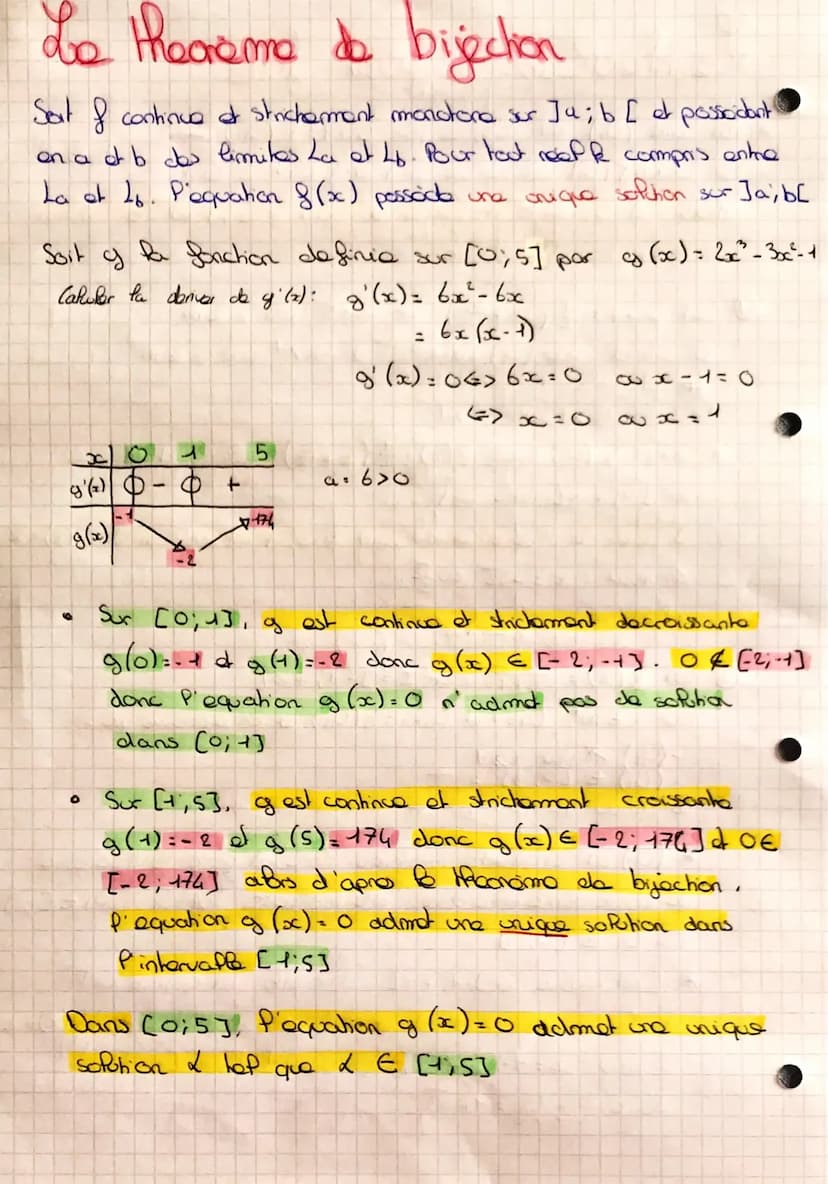 Le theorème de bijection
Soit f continue et strictement monotone sur ]a;b[ et possédant
en a et b des limites La et Lb. Pour tout réel k compris entre
La et Lb. l'equation f(x) possède une unique solution sur ]a;b[
Soit g la fonction definie sur [0;5] par g(x) = 2x³ - 3x² - 1
Calculer la deriver de g'(x): g'(x) = 6x² - 6x
= 6x(x-1)
g'(x) = 0 <=> 6x = 0 ou x - 1 = 0
<=> x = 0 ou x = 1
x 0 1 5
g'(x) 0 - 0 + a = 6>0
g(x) -1 -2 174
• Sur [0;1], g est continue et strictement decroissante
g(0)=-1 et g(1)=-2 donc g(x) ∈ [-2;-1]. 0 ∉ [-2;-1]
donc l'equation g(x)=0 n'admet pas de solution
dans [0;1]
• Sur [1;5], g est continue et strictement croissante
g(1)=-2 et g(5)=174 donc g(x) ∈ [-2;174] et 0 ∈
[-2;174] alors d'apres le theorème de bijection,
l'equation g(x)=0 admet une unique solution dans
l'intervalle [1;5]
Dans [0;5], l'equation g(x)=0 admet une unique
solution α tel que α ∈ [1;5]